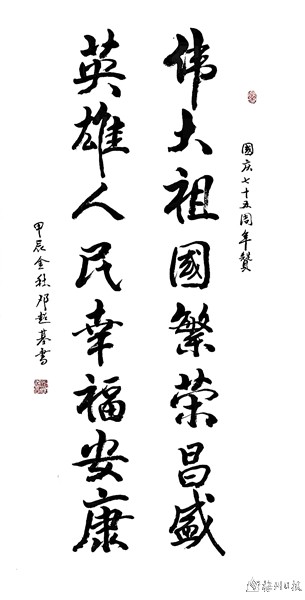 國庆七十五周年贊
伟大祖國繁荣昌盛
英雄人民幸福安康
甲辰金秋邓超慕書
梅州日报